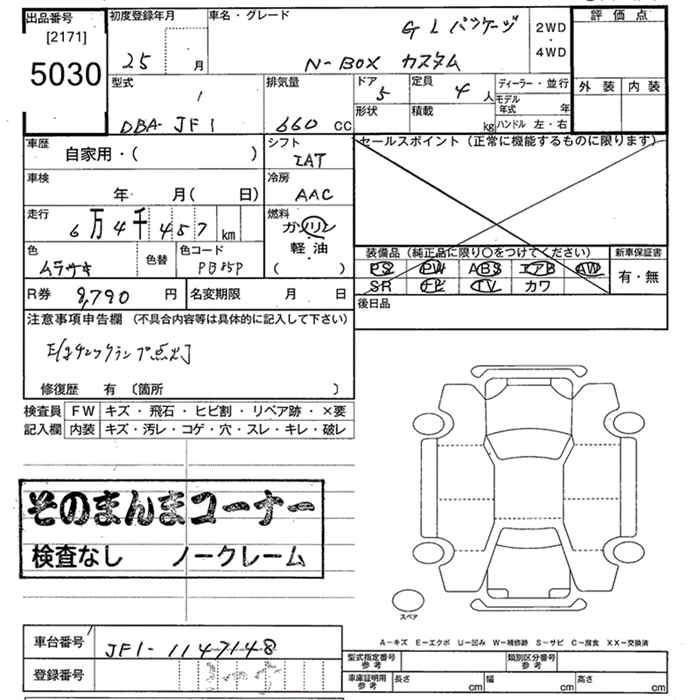 出品番号 初度登録年月 車名・グレード 評価点
[2171] G L パッケージ 2WD
5030 25 月 N-BOX カスタム ・ 4WD
型式 排気量 ドア 定員 ディーラー・並行 外装 内装
5 4 人 モデル年式 年
DBA-JF1 660 cc 形状 積載 kg ハンドル 左・右
車歴 シフト セールスポイント（正常に機能するものに限ります）
自家用・( ) IAT
車検 冷房
年 月( 日) AAC
走行 燃料
6万4千457km ガソリン
軽油
色 色替 色コード ・ 装備品（純正品に限り〇をつけてください） 新車保証書
ムラサキ PB85P ( ) PS PW ABS エアB AW 有・無
SR ナビ TV カワ
R券 8,790 円 名変期限 月 日 後日品
注意事項申告欄（不具合内容等は具体的に記入して下さい）
修復歴 有 〔箇所 〕
検査員 FW キズ・飛石・ヒビ割・リペア跡・×要
記入欄 内装 キズ・汚レ・コゲ・穴・スレ・キレ・破レ
そのまんまコーナー
検査なし ノークレーム
スペア
A－キズ E－エクボ U－凹み W－補修跡 S－サビ C－腐食 XX－交換済
車台番号 JF1-1147148
型式指定番号 参考 類別区分番号 参考
登録番号
車庫証明用 参考 長さ cm 幅 cm 高さ cm